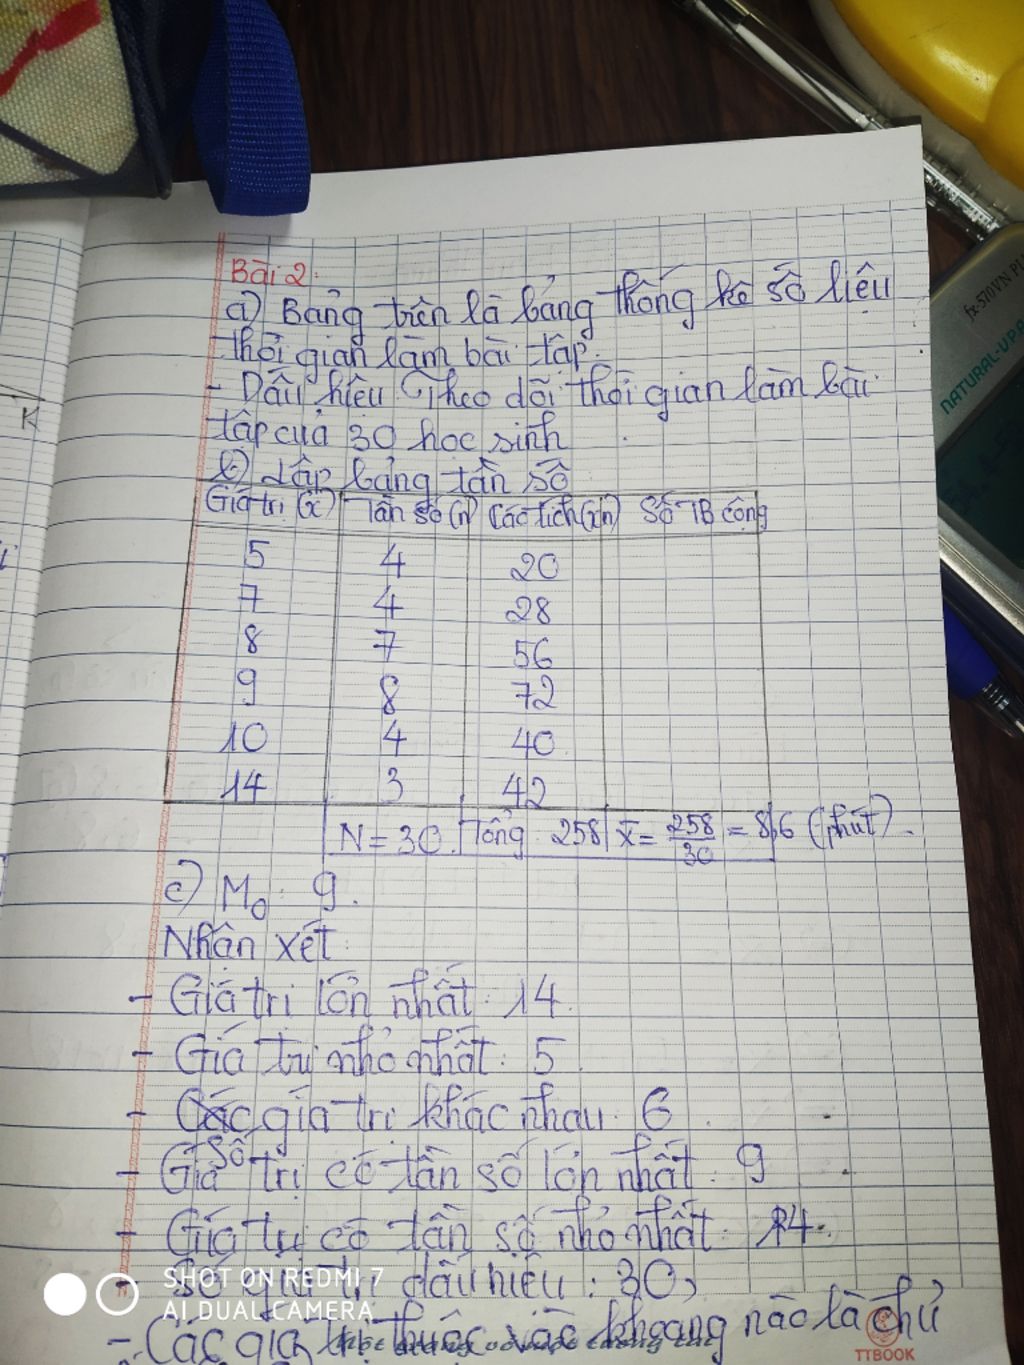 Bài 2:
a) Bảng trên là bảng thống kê số liệu
thời gian làm bài tập.
- Dấu hiệu: Theo dõi thời gian làm bài
tập của 30 học sinh
b) Lập bảng tần số
Giá trị (x) Tần số (n) Các tích (xn) Số TB cộng
5 4 20
7 4 28
8 7 56
9 8 72
10 4 40
14 3 42
N = 30. Tổng: 258 X̄ = 258/30 = 8,6 (phút).
c) M₀: 9.
Nhận xét:
- Giá trị lớn nhất: 14.
- Giá trị nhỏ nhất: 5
- Các giá trị khác nhau: 6.
Số
- Giá trị có tần số lớn nhất: 9
- Giá trị có tần số nhỏ nhất: 14.
- Số giá trị dấu hiệu: 30,
- Các giá trị thuộc vào khoảng nào là chủ
SHOT ON REDMI 7
AI DUAL CAMERA
TTBOOK
fx-570VN PL
NATURAL-V.P.A
K